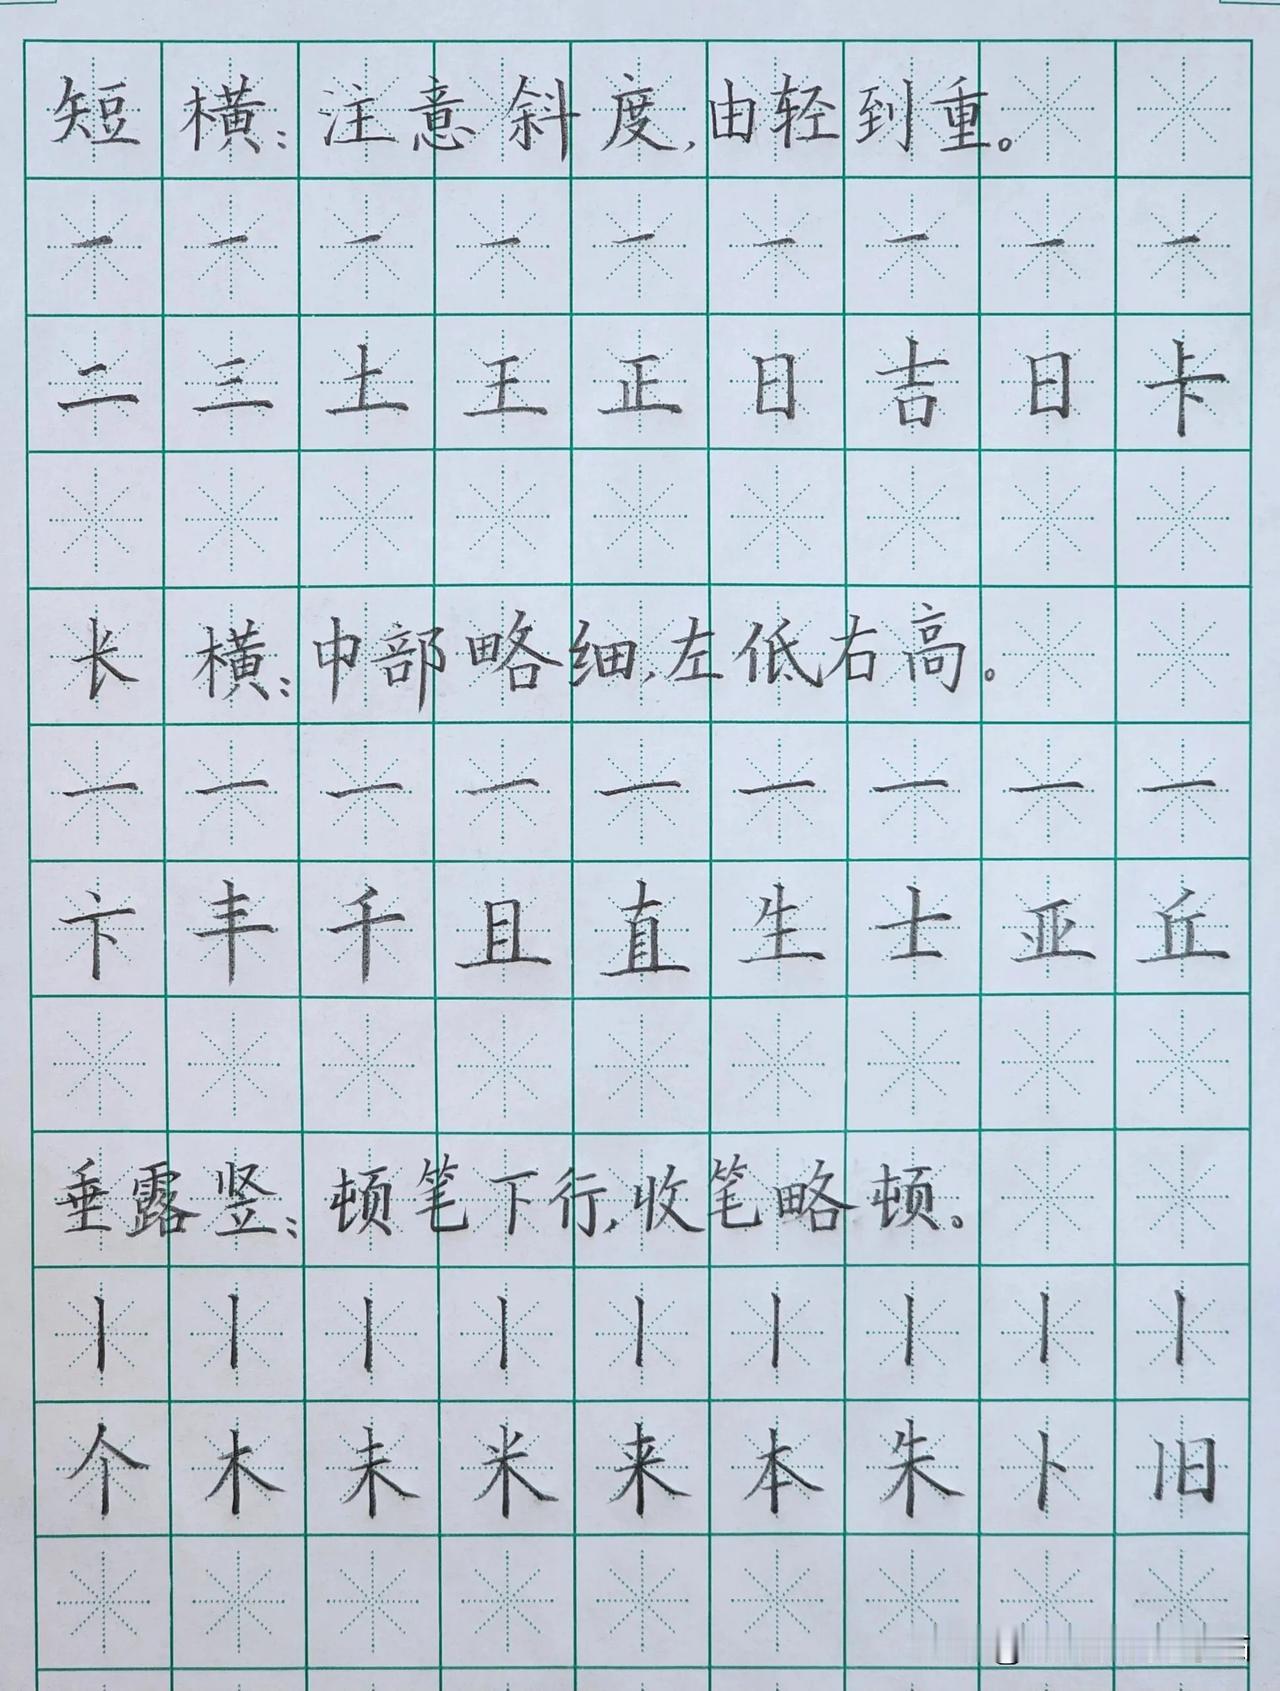 短横:注意斜度,由轻到重。
一一一一一一一一一
二三土王正日吉日卡
长横:中部略细,左低右高。
一一一一一一一一一
卞丰千且直生士亚丘
垂露竖:顿笔下行,收笔略顿。
丨丨丨丨丨丨丨丨丨
个木未米来本朱卜旧